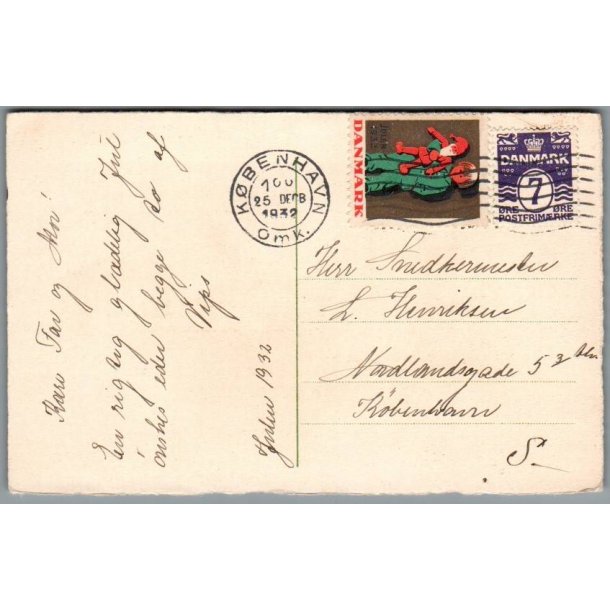 Kære Far og Mor!
En rigtig glædelig Jul
ønskes eder begge to af
Vips
Julen 1932
KØBENHAVN
25 DECB
1932
Omk.
DANMARK
DANMARK
7
ØRE ØRE
POSTFRIMÆRKE
Herr Snedkermester
L. Henriksen
Nordlandsgade 5
København
S.